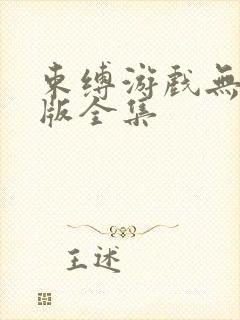 束缚游戏無
版全集
王述